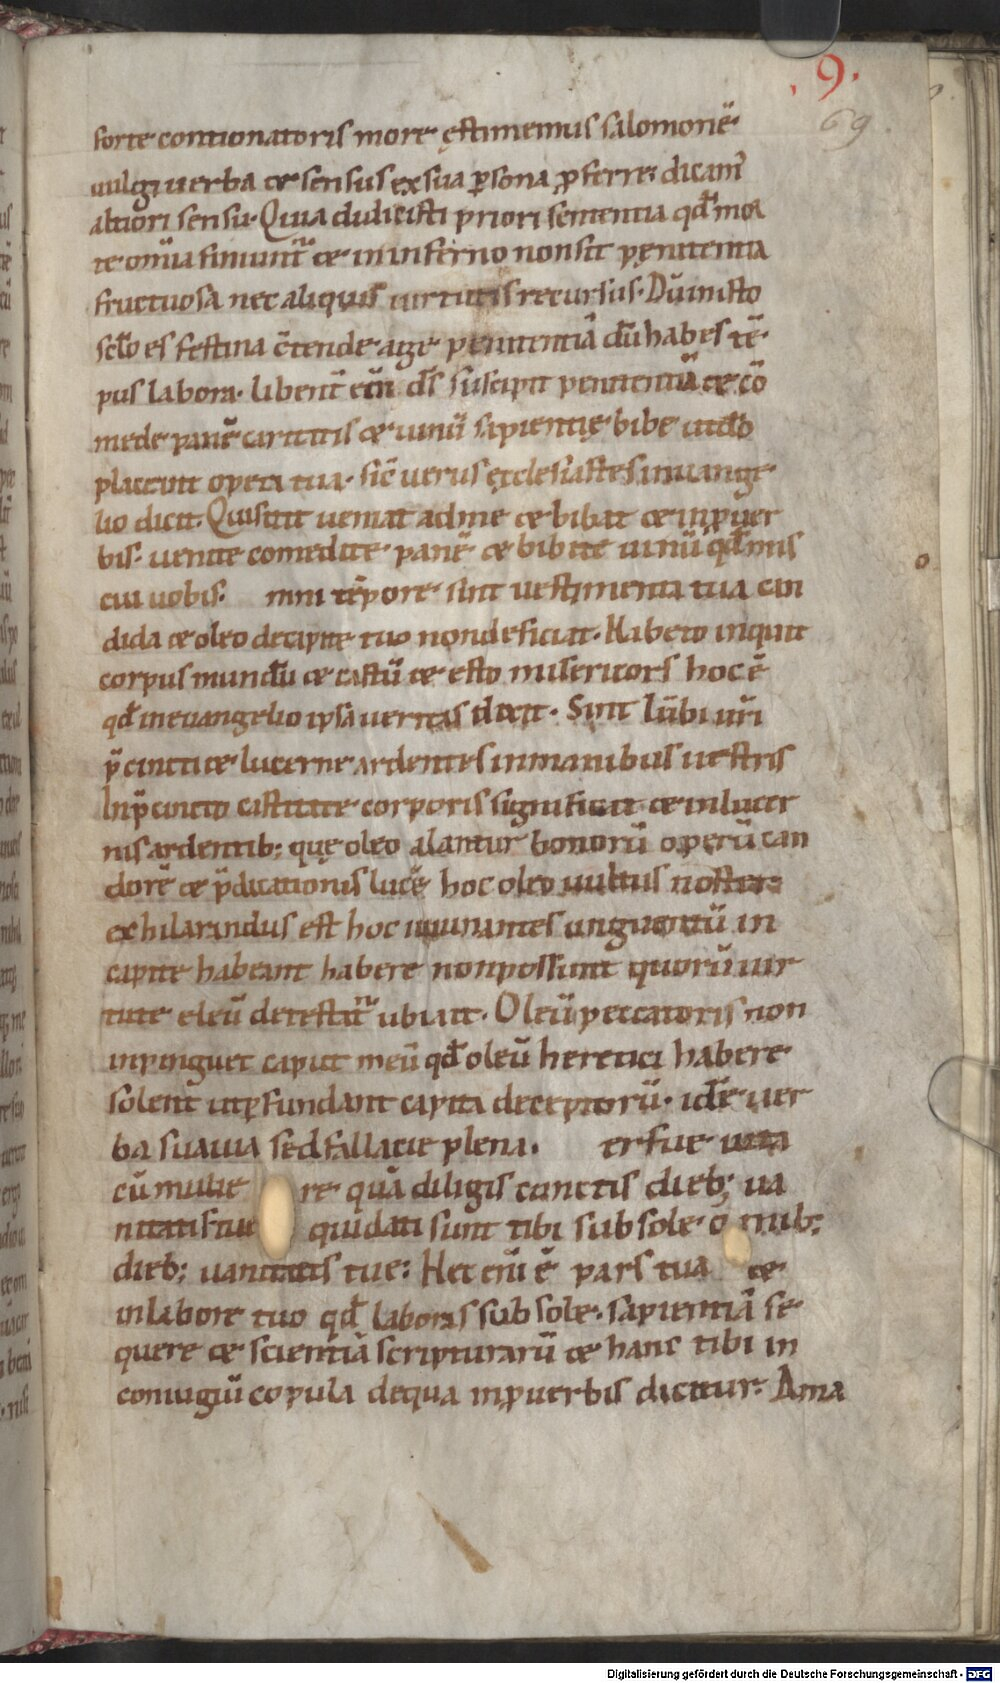 .9.
69.
forte contionatoris more ęstimemus salomonē
uulgi uerba & sensus ex sua ꝑsona ꝓferre. dicam̄
altiori sensu. Quia didicisti priori sententia qđ mor
te om̄ia finiunt̄ & in inferno non sit pęnitentia
fructuosa nec aliquis uirtutis recursus. Dū in isto
sc̄lo es festina c̄tende age penitentiā dū habes tē
pus labora. libent̄ eni d̄s suscipit penitentiā & cō
mede panē caritatis & uinū sapientię bibe
placent opera tua. sic̄ uerus ęcclesiastes in euange
lio dicit. Qui sitit ueniat ad me & bibat & in ꝓuer
bis. uenite comedite panē & bibite uinū qđ mis
cui uobis. mni tēpore sint uestimenta tua can
dida & oleo de capite tuo non deficiat. Habeto inquit
corpus mundū & castū & esto misericors hoc ē
qđ in euangelio ipsa ueritas dicit. Sint lūbi uri
p̄cincti & lucerne ardentes in manibus uestris
In p̄cincto castitate corporis significat & in lucer
nis ardentib; quę oleo alantur bonorū operū can
dorē & p̄dicationis lucē hoc oleo uultus noster
exhilarandus est hoc iuuantes unguentū in
capite habeant habere non possunt quorū uir
tute eleū detestat̄ ubi ait. Oleū peccatoris non
inpinguet caput meū qđ oleū heretici habere
solent ut ꝑfundant capita deceptorū. idē uer
ba suauia sed fallacie plena. erfue uita
cū mulie re quā diligis cunctis dieb; ua
nitatis tue qui dati sunt tibi sub sole ō nib;
dieb; uanitatis tue; Hec eni ē pars tua &
in labore tuo qđ laboras sub sole. sapientiā se
quere & scientiā scripturarū & hanc tibi in
coniugiū copula de qua in ꝓuerbis dicitur. Ama
Digitalisierung gefördert durch die Deutsche Forschungsgemeinschaft - DFG